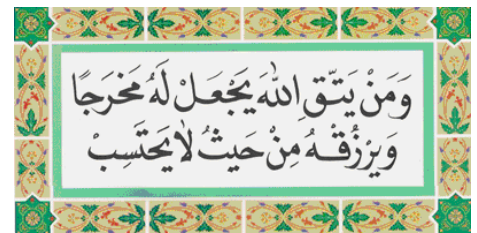 وَمَنْ يَتَّقِ اللهَ يَجْعَلْ لَهُ مَخْرَجًا
وَيَرْزُقْهُ مِنْ حَيْثُ لَا يَحْتَسِبْ